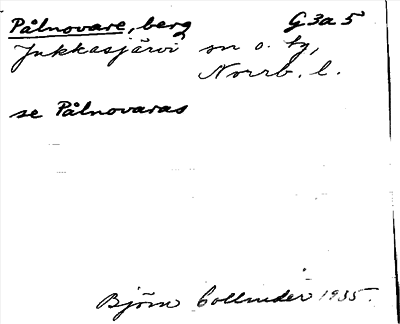 Pålnovare, berg G 3 a 5
Jukkasjärvi sn o. tg,
Norrb. l.
se Pålnovaras
Björn Collinder 1935.